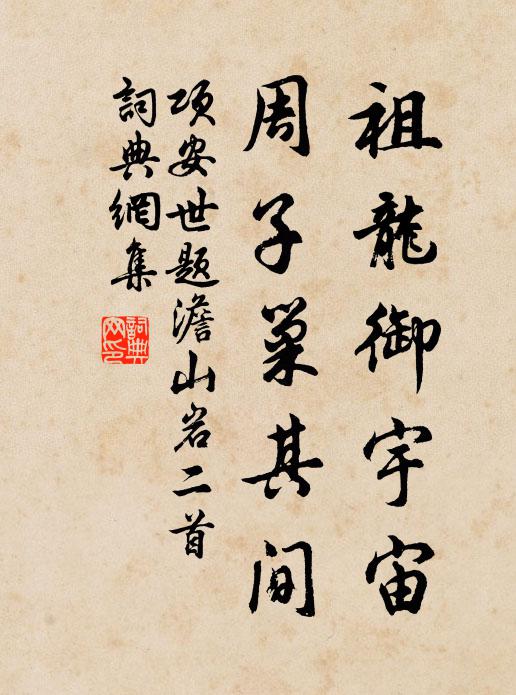 祖龍御宇宙
周子巢其間
项安世题澹山岩二首
詞典網集
詞典網印